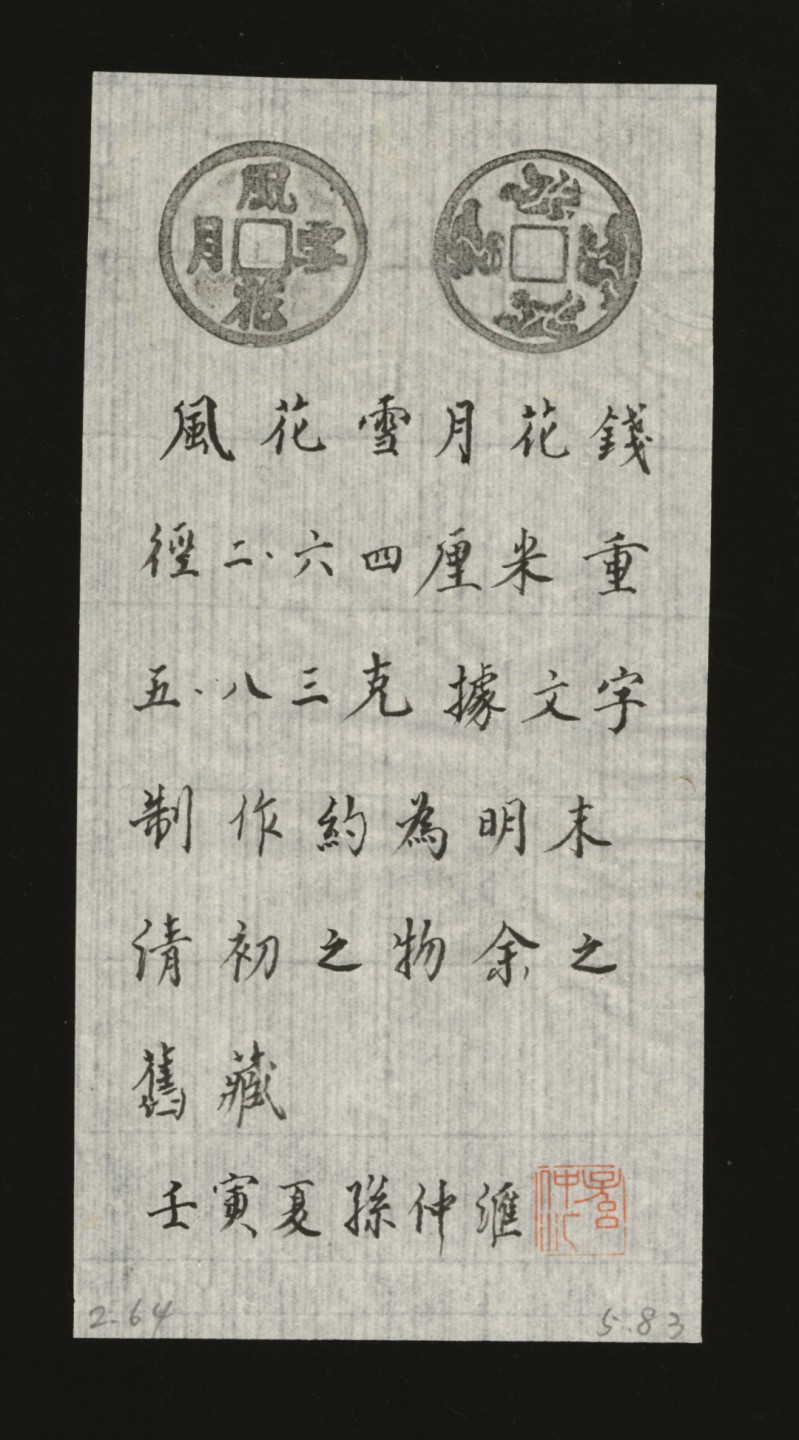 風花雪月
風花雪月花錢
徑二、六四厘米重
五、八三克據文字
制作約為明末
清初之物余之
舊藏
壬寅夏孫仲滙
2.64
5.83